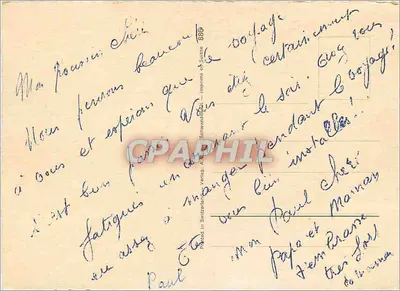 Mon poussin chéri
Nous pensons beaucoup
à vous et espérons que le voyage
s'est bien passé. Vous étiez certainement
fatigués en arrivant le soir. Avez vous
eu assez à manger pendant le voyage?
Êtes vous bien installés!
Mon Paul chéri
Papa et Maman
t'embrasse
très fort
ta maman
Paul
889
Printed in Switzerland
CPAPHIL